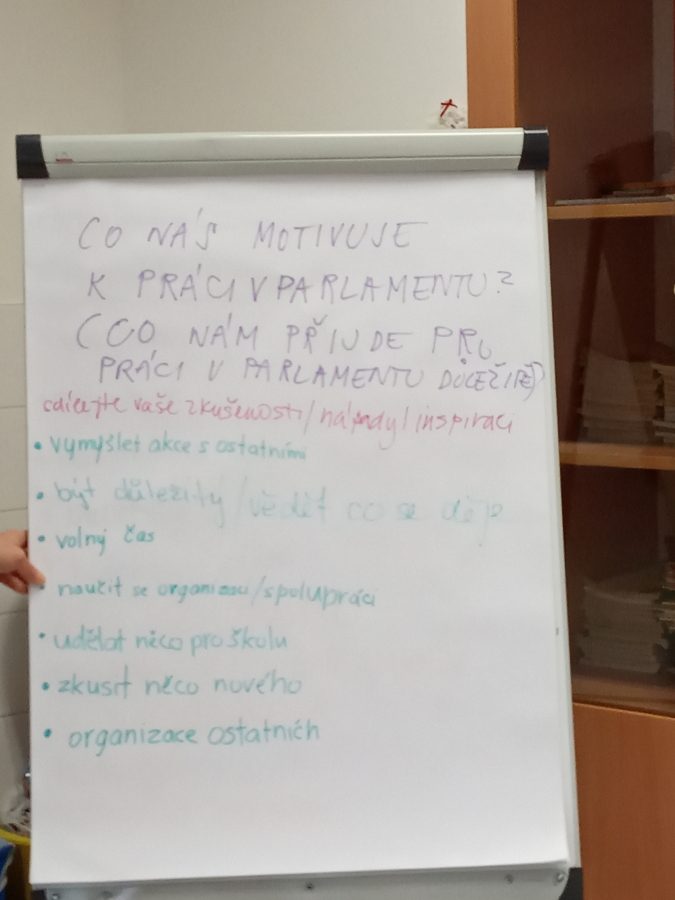 CO NÁS MOTIVUJE
K PRÁCI V PARLAMENTU?
(CO NÁM PŘIJDE PRO
PRÁCI V PARLAMENTU DŮLEŽITÉ)
sdílejte vaše zkušenosti/nápady/inspiraci
• vymýšlet akce s ostatními
• být důležitý/vědět co se děje
• volný čas
• naučit se organizaci/spolupráci
• udělat něco pro školu
• zkusit něco nového
• organizace ostatních